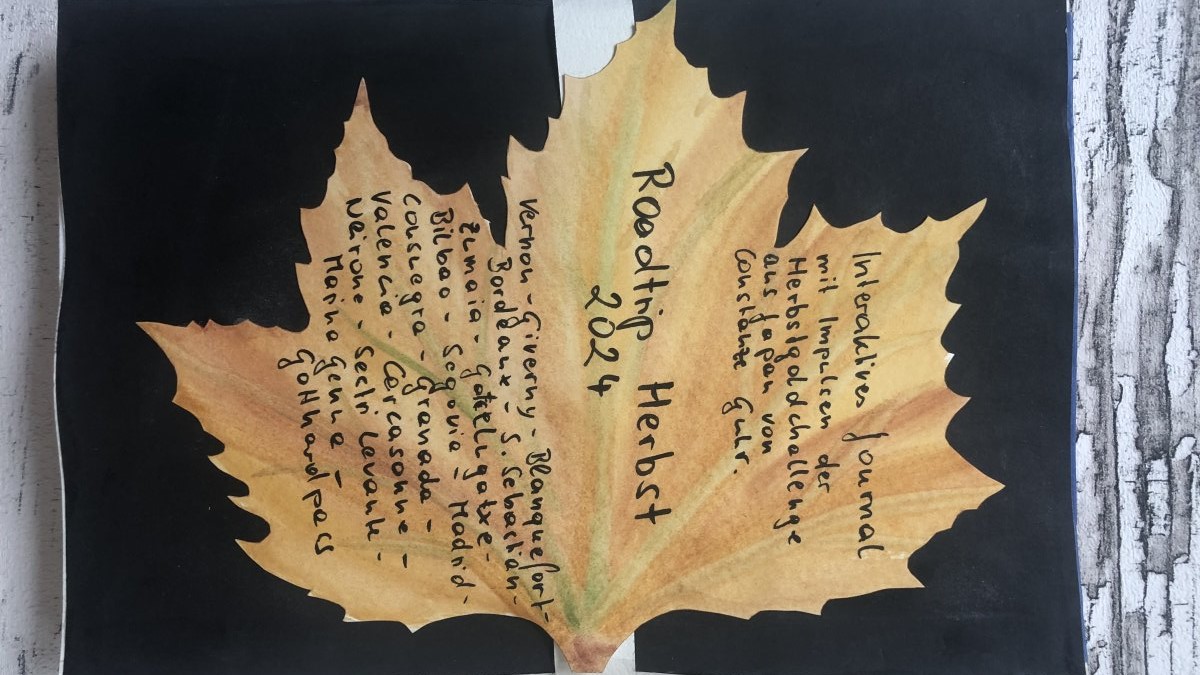 Interaktives Journal
mit Impulsen der
Herbstgoldchallenge
aus Japan von
Constanze Guhr.
Roadtrip Herbst
2024
Vernon - Giverny - Blanquefort -
Bordeaux - S. Sebastian -
Zumaia - Gaztelugatxe -
Bilbao - Segovia - Madrid -
Consuegra - Granada -
Valencia - Carcasonne -
Neirone - Sestri Levante -
Marina Genua -
Gotthardpass